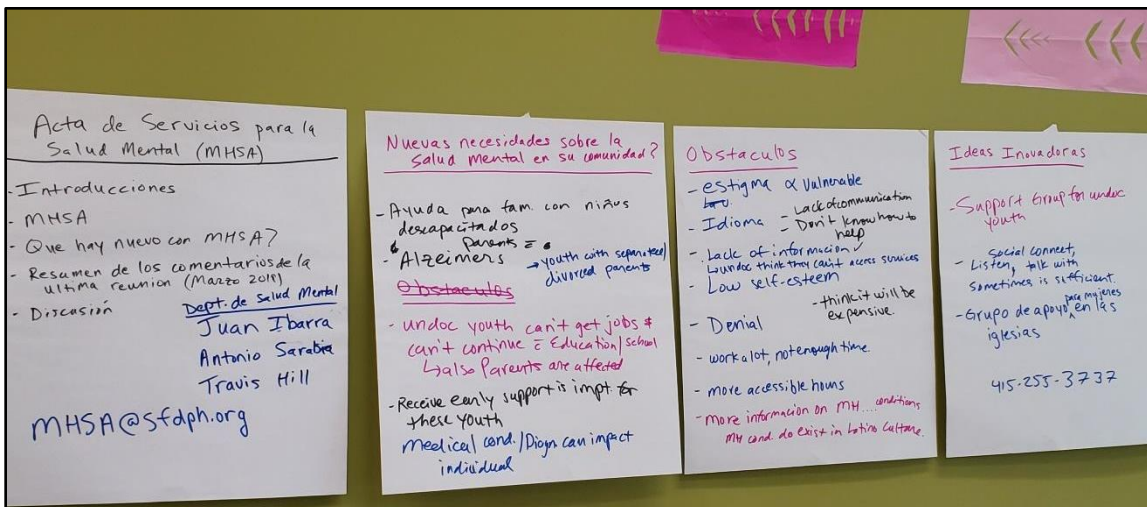 Acta de Servicios para la
Salud Mental (MHSA)
- Introducciones
- MHSA
- Que hay nuevo con MHSA?
- Resumen de los comentarios de la
ultima reunion (Marzo 2019)
- Discusión
Dept. de Salud Mental
Juan Ibarra
Antonio Sarabia
Travis Hill
MHSA@sfdph.org
Nuevas necesidades sobre la
Salud mental en su comunidad?
- Ayuda para fam. con niños
descapacitados
parents =
- Alzeimers
→ youth with separated/
divorced parents
Obstaculos
- undoc youth can't get jobs &
can't continue = Education/school
↳ also Parents are affected
- Receive early support is impt for
these youth
Medical cond./Diagn can impact
individual
Obstaculos
- estigma & vulnerable
- Idioma
- Lack of communication
- Don't know how to
help
- Lack of informacion ✓
↳ undoc think they can't access services
- Low self-esteem
- think it will be
expensive.
- Denial
- work a lot, not enough time.
- more accessible hours
- More information on MH.... conditions
MH cond. do exist in Latino Culture.
Ideas Inovadoras
- Support Group for undoc
youth
social connect,
- Listen, talk with
sometimes is sufficient.
- Grupo de apoyo ^ para mujeres en las
iglesias
415-255-3737